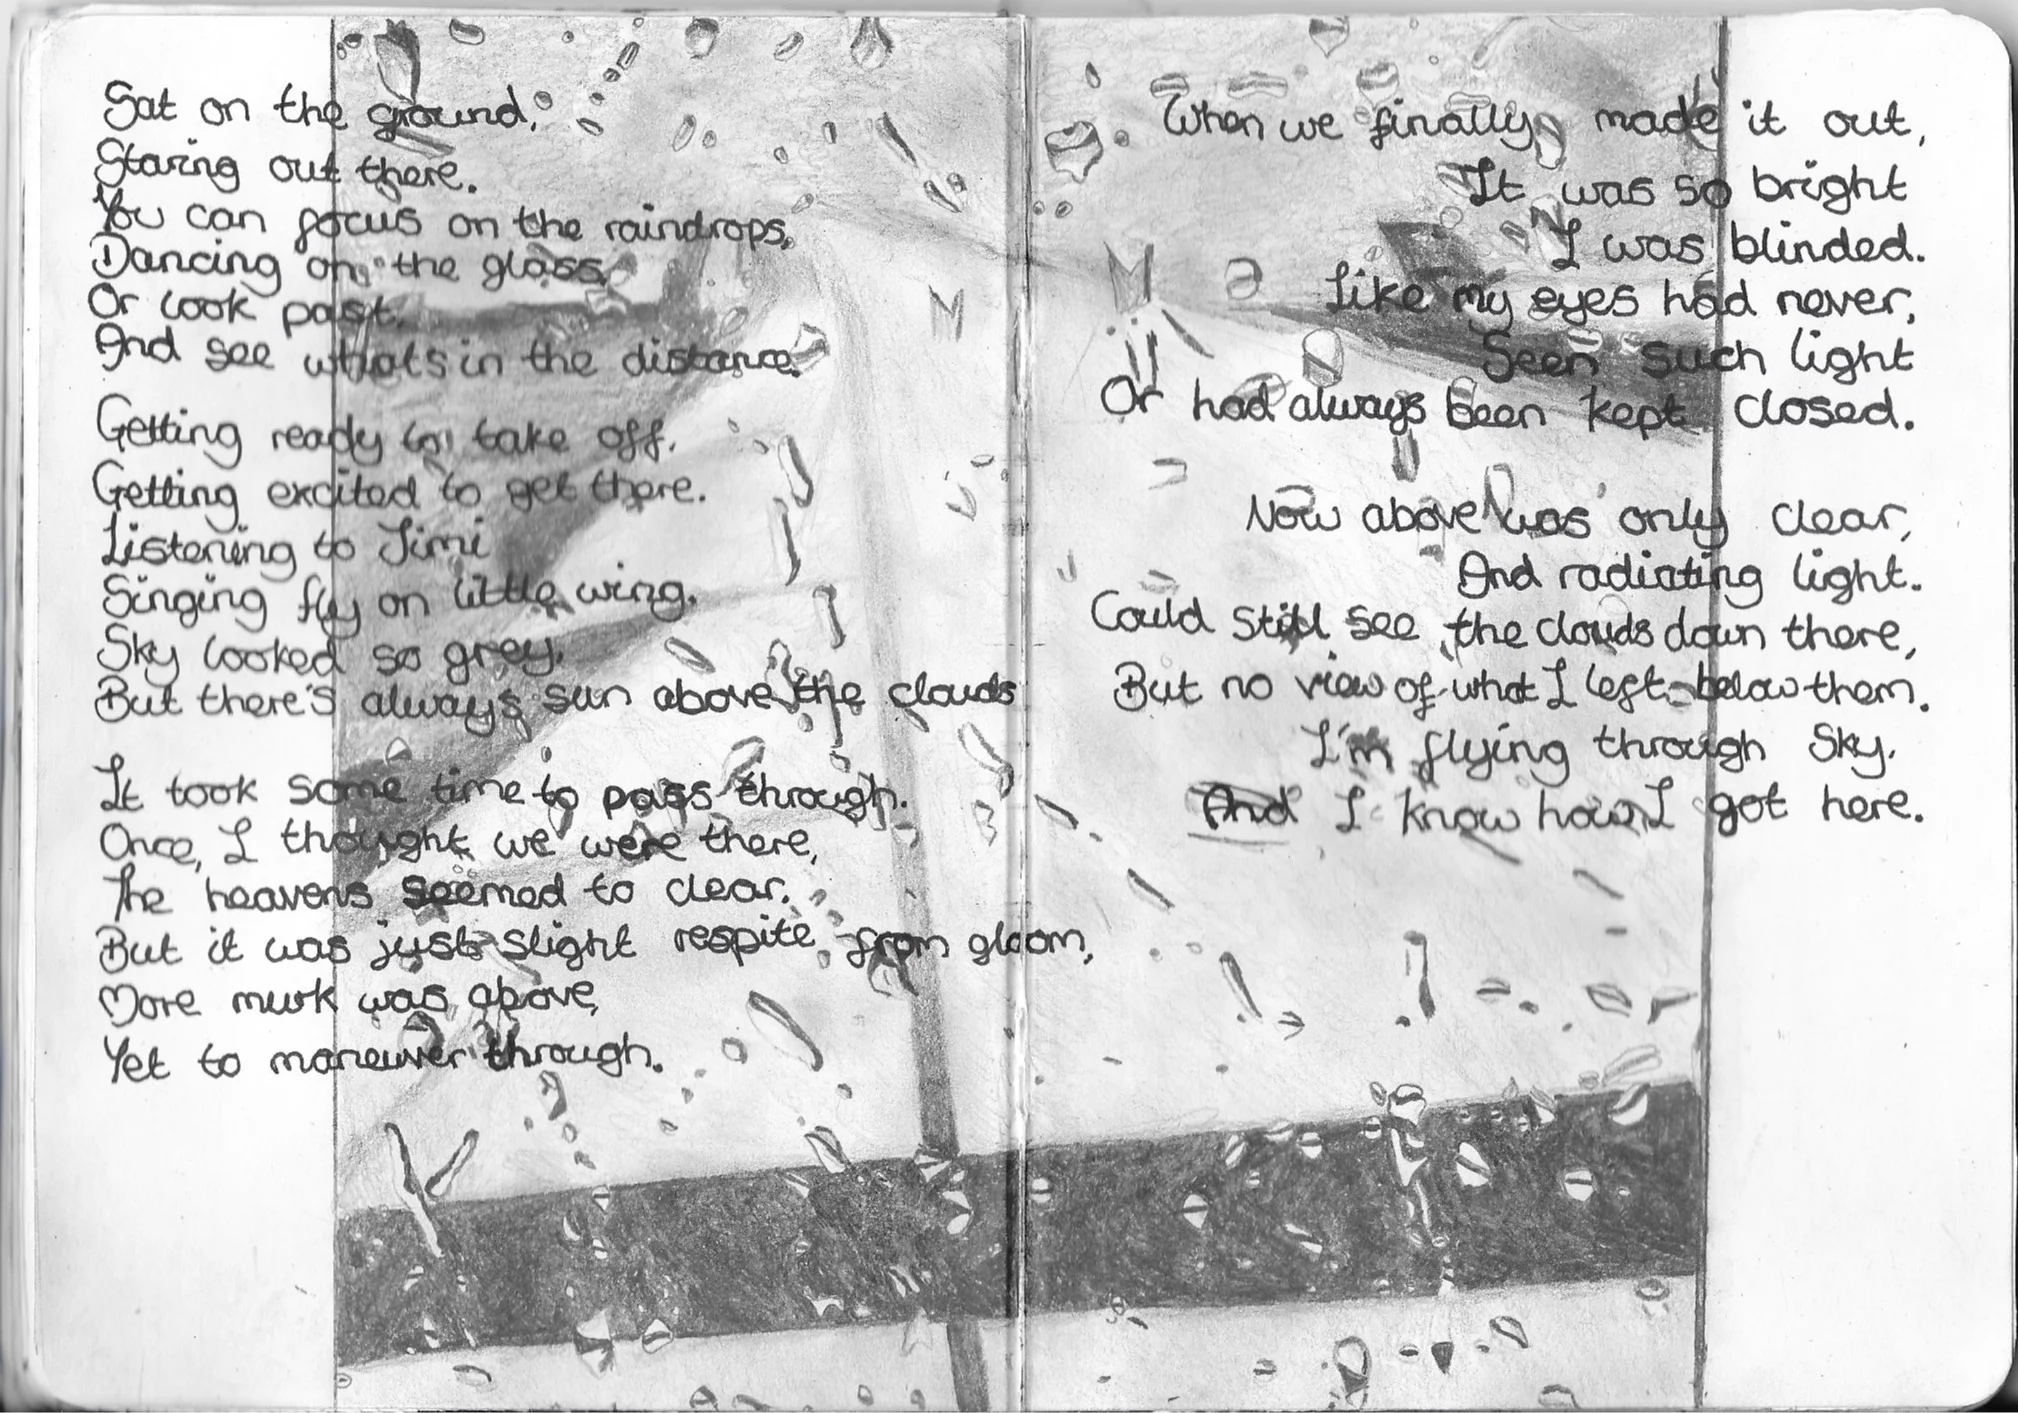 Sat on the ground,
Staring out there.
You can focus on the raindrops,
Dancing on the glass,
Or look past,
And see whats in the distance.
Getting ready to take off.
Getting excited to get there.
Listening to Jimi
Singing fly on little wing.
Sky looked so grey,
But there's always sun above the clouds
It took some time to pass through.
Once, I thought we were there,
The heavens seemed to clear.
But it was just slight respite from gloom,
More murk was above,
Yet to maneuver through.
When we finally made it out,
It was so bright
I was blinded.
Like my eyes had never,
Seen such light
Or had always been kept closed.
Now above was only clear,
And radiating light.
Could still see the clouds down there,
But no view of what I left below them.
I'm flying through Sky.
And I know how I got here.